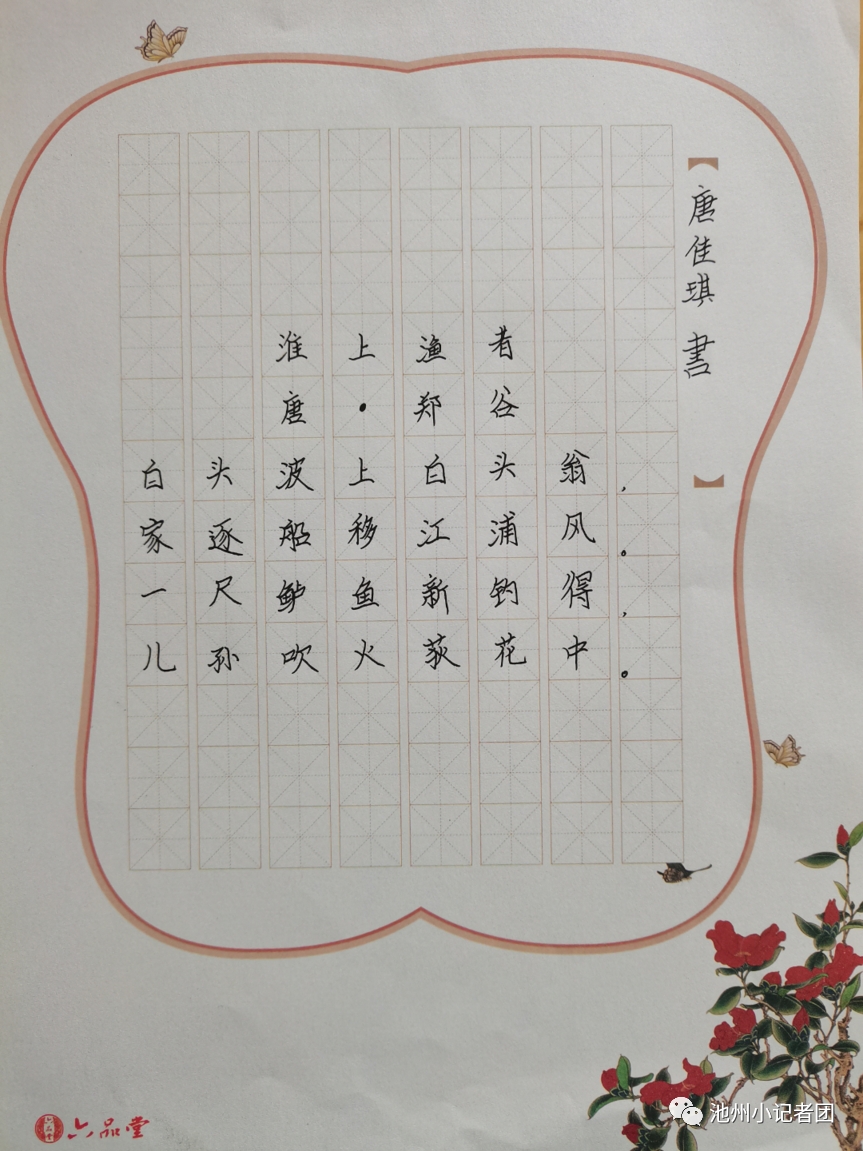 淮上渔者
唐·郑谷
白头波上白头翁，
家逐船移江浦风。
一尺鲈鱼新钓得，
儿孙吹火荻花中。
【唐佳琪 書】
六品堂
池州小记者团